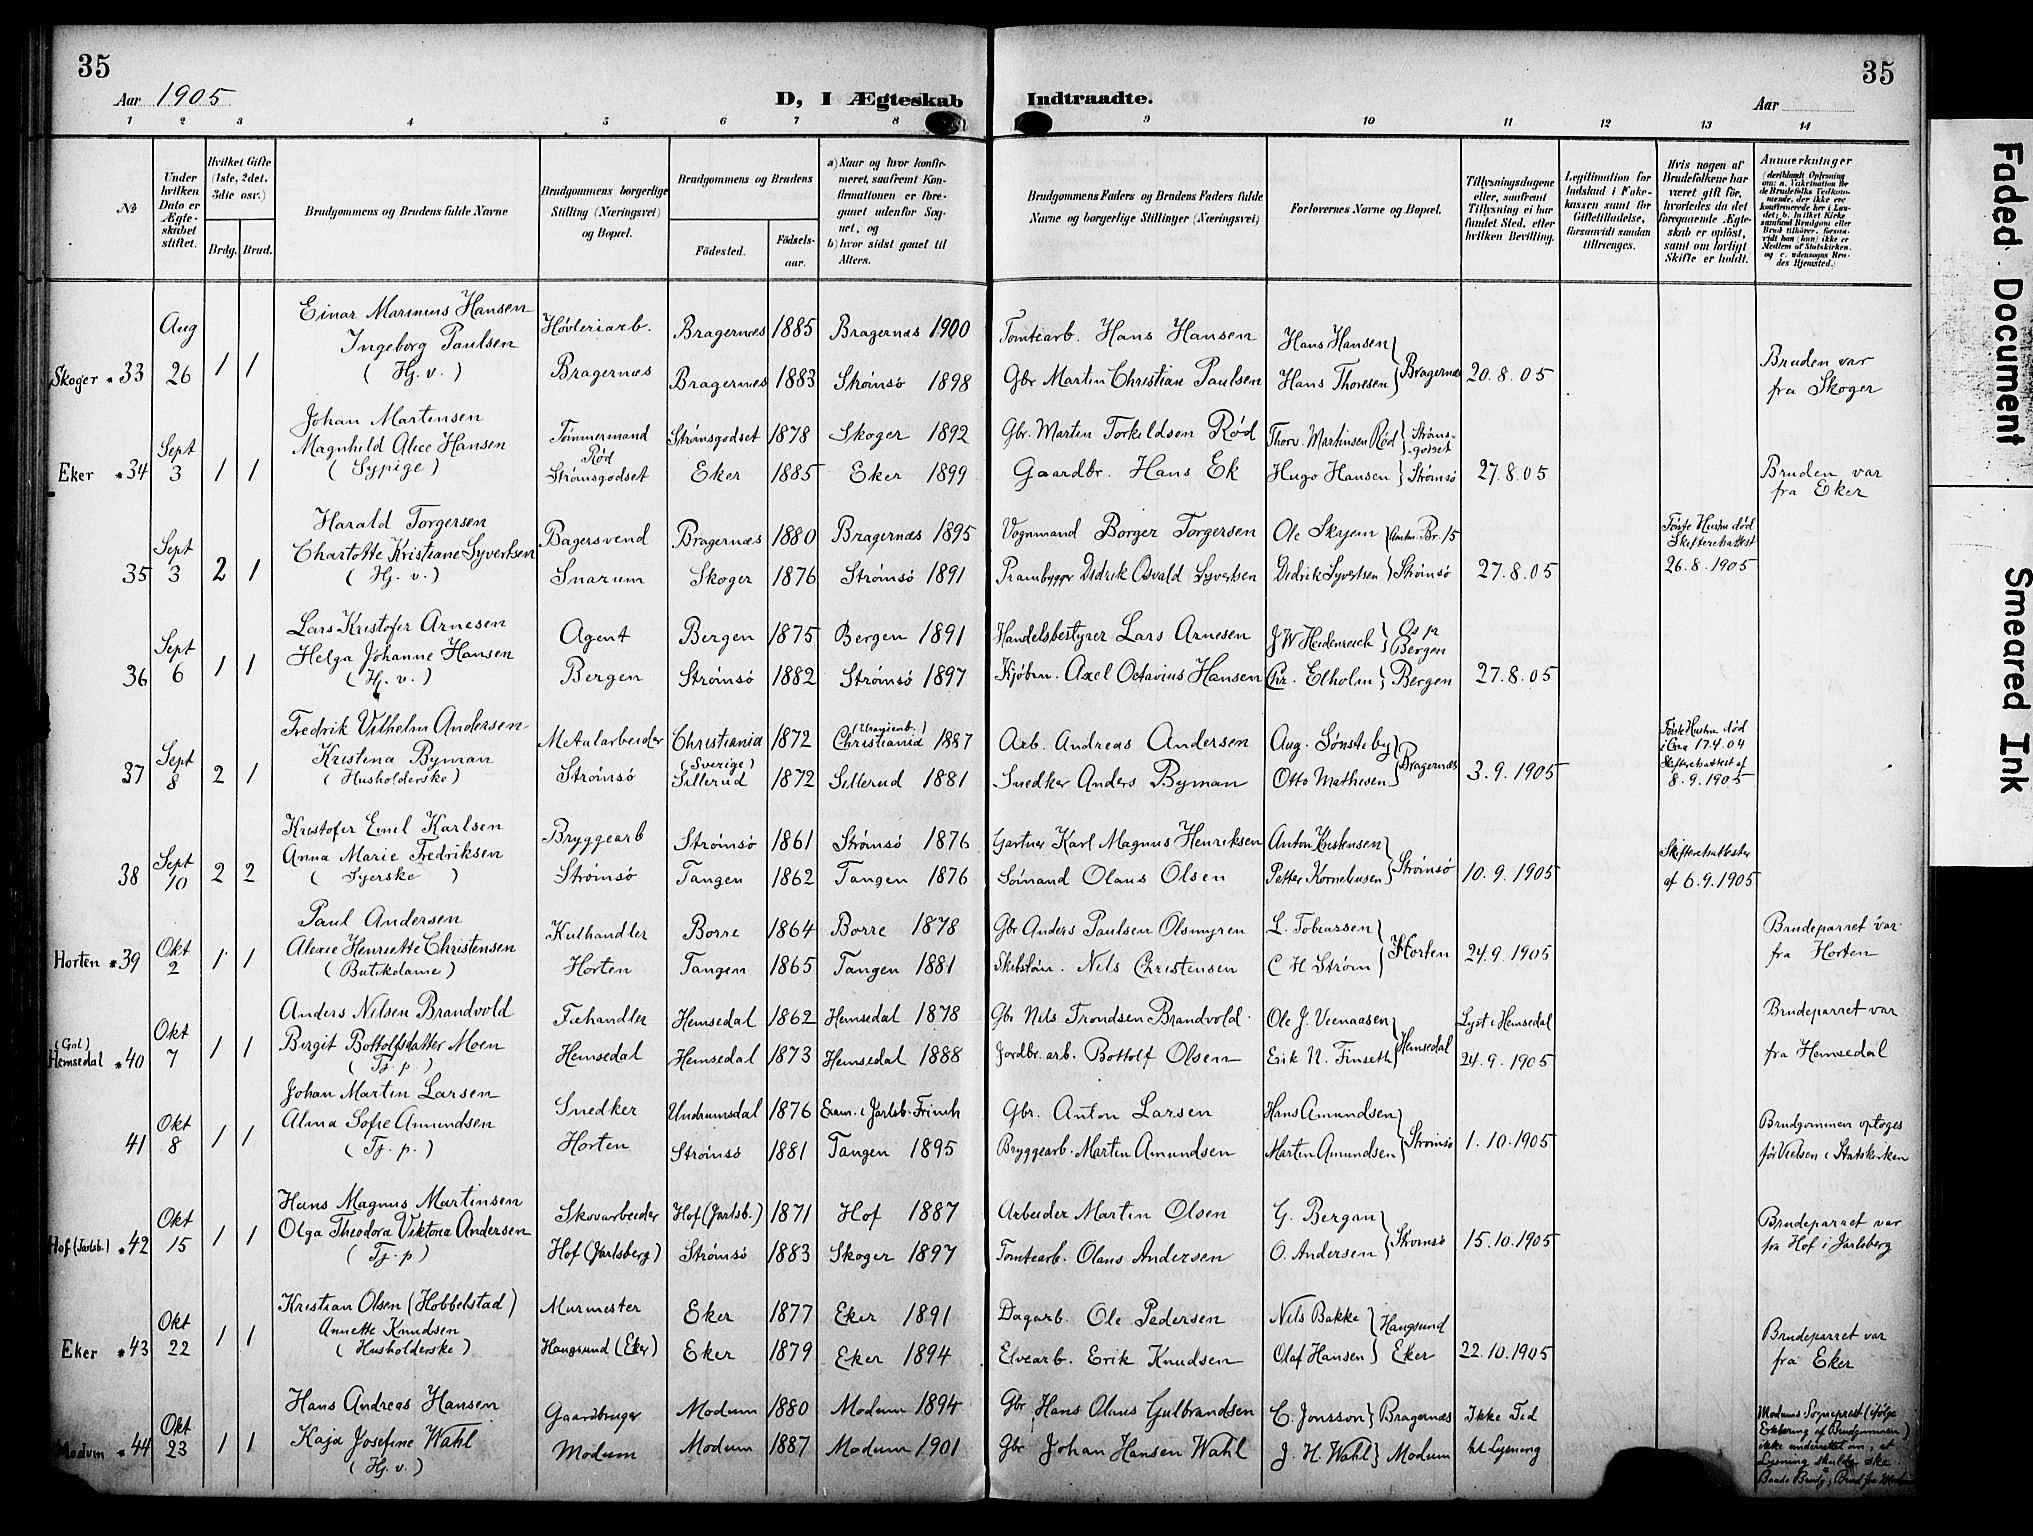 35
35
Aar 1905
D, I Ægteskab
Indtraadte.
Aar
1 2 3 4 5 6 7 8 9 10 11 12 13 14
№
Under hvilken Dato er Ægteskabet stiftet.
Hvilket Gifte (1ste, 2det, 3die osv.)
Brdg. Brud.
Brudgommens og Brudens fulde Navne
Brudgommens borgerlige Stilling (Næringsvei) og Bopæl.
Brudgommens og Brudens
Fødested.
Fødselsaar.
a) Naar og hvor konfirmeret, saafremt Konfirmationen er foregaaet udenfor Sognet, og
b) hvor sidst gaaet til Alters.
Brudgommens Faders og Brudens Faders fulde Navne og borgerlige Stillinger (Næringsvei)
Forlovernes Navne og Bopæl.
Tillysningsdagene eller, saafremt Tillysning ei har fundet Sted, efter hvilken Bevilling.
Legitimation for Indskud i Enkekassen samt for Giftetilladelse, forsaavidt saadan tiltrænges.
Hvis nogen af Brudefolkene har været gift før, hvorledes da det foregaaende Ægteskab er opløst, samt om lovligt Skifte er holdt.
Anmerkninger
Skoger * 33 Aug 26 1 1
Einar Marinius Hansen Høvleriarb. Bragernæs 1885 Bragernæs 1900 Tomtearb. Hans Hansen Hans Hansen
Ingeborg Paulsen
( Hj. v. ) Bragernæs Bragernæs 1883 Strømsø 1898 Gbr Martin Christian Paulsen Hans Thoresen } Bragernæs 20.8.05 Bruden var fra Skoger
Eker * 34 Sept 3 1 1
Johan Martinsen Tømmermand Strømsgodset 1878 Skoger 1892 Gbr. Martin Torkildsen Rød Thorv. Martinsen Rød } Strømsgodset
Magnhild Alice Hansen
( Sypige ) Rød Strømsgodset Eker 1885 Eker 1899 Gaardbr. Hans Ek Hugo Hansen } Strømsø 27.8.05 Bruden var fra Eker
35 Sept 3 2 1
Harald Torgersen Bagersvend Bragernæs 1880 Bragernæs 1895 Vognmand Borger Torgersen Ole Skrjem
Charlotte Kristiane Syvertsen
( Hj. v. ) Snarum Skoger 1876 Strømsø 1891 Prambygger Didrik Osvald Syvertsen Didrik Syvertsen } Strømsø 27.8.05 26.8.1905
36 Sept 6 1 1
Lars Kristofer Arnesen Agent Bergen 1875 Bergen 1891 Handelsbestyrer Lars Arnesen J W Heidenreich } Os pr Bergen
Helga Johanne Hansen
( Hj. v. ) Bergen Strømsø 1882 Strømsø 1897 Kjøbm. Axel Octavius Hansen Chr. Elholm } Bergen 27.8.05
37 Sept 8 2 1
Fredrik Vilhelm Andersen Metalarbeider Christiania 1872 Christiania 1887 Arb. Andreas Andersen Aug. Sønsteby
Kristina Byman
( Husholderske ) Strømsø (Sverige) Sillerud 1872 Sillerud 1881 Snedker Anders Byman Otto Mathisen } Bragernæs 3.9.1905 Skifteretsattest af 8.9.1905
38 Sept 10 2 2
Kristofer Emil Karlsen Bryggearb Strømsø 1861 Strømsø 1876 Gartner Karl Magnus Henriksen Anton Kristensen
Anna Marie Fredriksen
( Syerske ) Strømsø Tangen 1862 Tangen 1876 Sømand Olaus Olsen Petter Kornelinsen } Strømsø 10.9.1905 Skifteretsattester af 6.9.1905
Horten * 39 Okt 2 1 1
Paul Andersen Kulhandler Borre 1864 Borre 1878 Gbr Anders Paulsen Olsmyren L. Tobiassen
Alexie Henriette Christensen
( Butikdame ) Horten Tangen 1865 Tangen 1881 Skibstøm. Nils Christensen C H Strøm } Horten 24.9.1905 Brudeparret var fra Horten
(Gol) Hemsedal * 40 Okt 7 1 1
Anders Nilsen Brandvold Fæhandler Hemsedal 1862 Hemsedal 1878 Gbr Nils Trondsen Brandvold Ole J. Veenaasen Lyst i Hemsedal
Birgit Bottolfsdatter Moen
( Tj. p ) Hemsedal Hemsedal 1873 Hemsedal 1888 Jordbr. arb. Bottolf Olsen Erik N. Finseth } Hemsedal 24.9.1905 Brudeparret var fra Hemsedal
41 Okt 8 1 1
Johan Martin Larsen Snedker Undrumsdal 1876 Exam. i Jarlsb. Frimh Gbr. Anton Larsen Hans Amundsen
Alma Sofie Amundsen
( Tj. p. ) Horten Strømsø 1881 Tangen 1895 Bryggearb. Martin Amundsen Martin Amundsen } Strømsø 1.10.1905 Brudgommen optoges før Vielsen i Statskirken
Hof (Jarlsb.) * 42 Okt 15 1 1
Hans Magnus Martinsen Skovarbeider Hof (Jarlsb.) 1871 Hof 1887 Arbeider Martin Olsen G. Bergan
Olga Theodora Viktoria Andersen
( Tj. p ) Hof (Jarlsberg) Strømsø 1883 Skoger 1897 Tomtearb. Olaus Andersen O. Andersen } Strømsø 15.10.1905 Brudeparret var fra Hof i Jarlsberg
Eker * 43 Okt 22 1 1
Kristian Olsen (Hobbelstad) Murmester Eker 1877 Eker 1891 Dagarb. Ole Pedersen Nils Bakke } Haugsund
Annette Knudsen
( Husholderske ) Haugsund (Eker) Eker 1879 Eker 1894 Elvearb. Erik Knudsen Olaf Hansen } Eker 22.10.1905 Brudeparret var fra Eker
Modum * 44 Okt 23 1 1
Hans Andreas Hansen Gaardbruger Modum 1880 Modum 1894 Gbr Hans Olaus Gulbrandsen C. Jonsson } Bragernæs Ikke Tid
Kaja Josefine Wahl
( Hj. v. ) Modum Modum 1887 Modum 1901 Gbr Johan Hansen Wahl J. H. Wahl } Modum til Lysning
Modums Sogneprest (ifølge
Erklæring af Brudgommen)
ikke underrettet om, at
Lysning skulde ske.
Faded Document
Smeared Ink